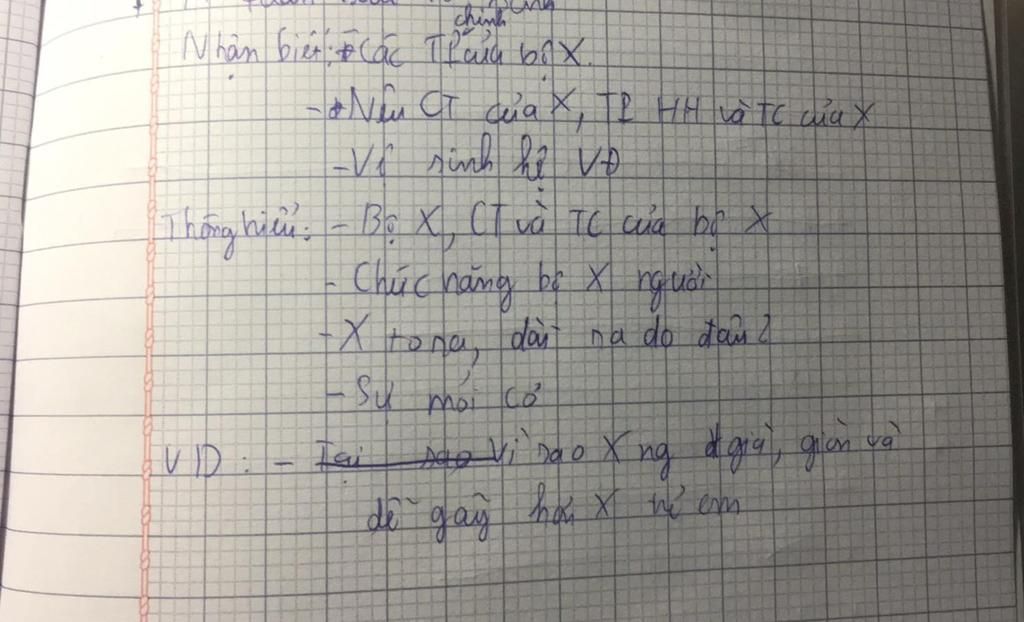 chính
Nhận biết: + Các TP của bộ X.
- + Nêu CT của X, TP HH và TC của X
- Vệ sinh hệ VĐ
Thông hiểu: - Bộ X, CT và TC của bộ X
- Chức năng bộ X người
- X to na, dài na do đâu?
- Sự mỏi cơ
VD: - Tại sao Vì sao X ng đ già, giòn và
dễ gãy hơn X trẻ em